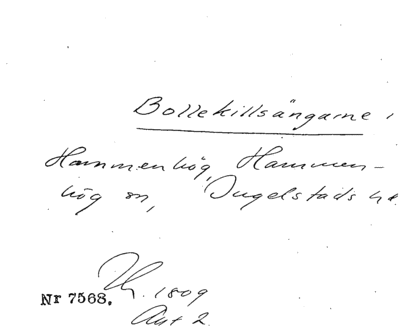 Bollekillsängarne i
Hammenhög, Hammen-
hög sn, Ingelstads hd
Nr 7568.
1809
Akt 2